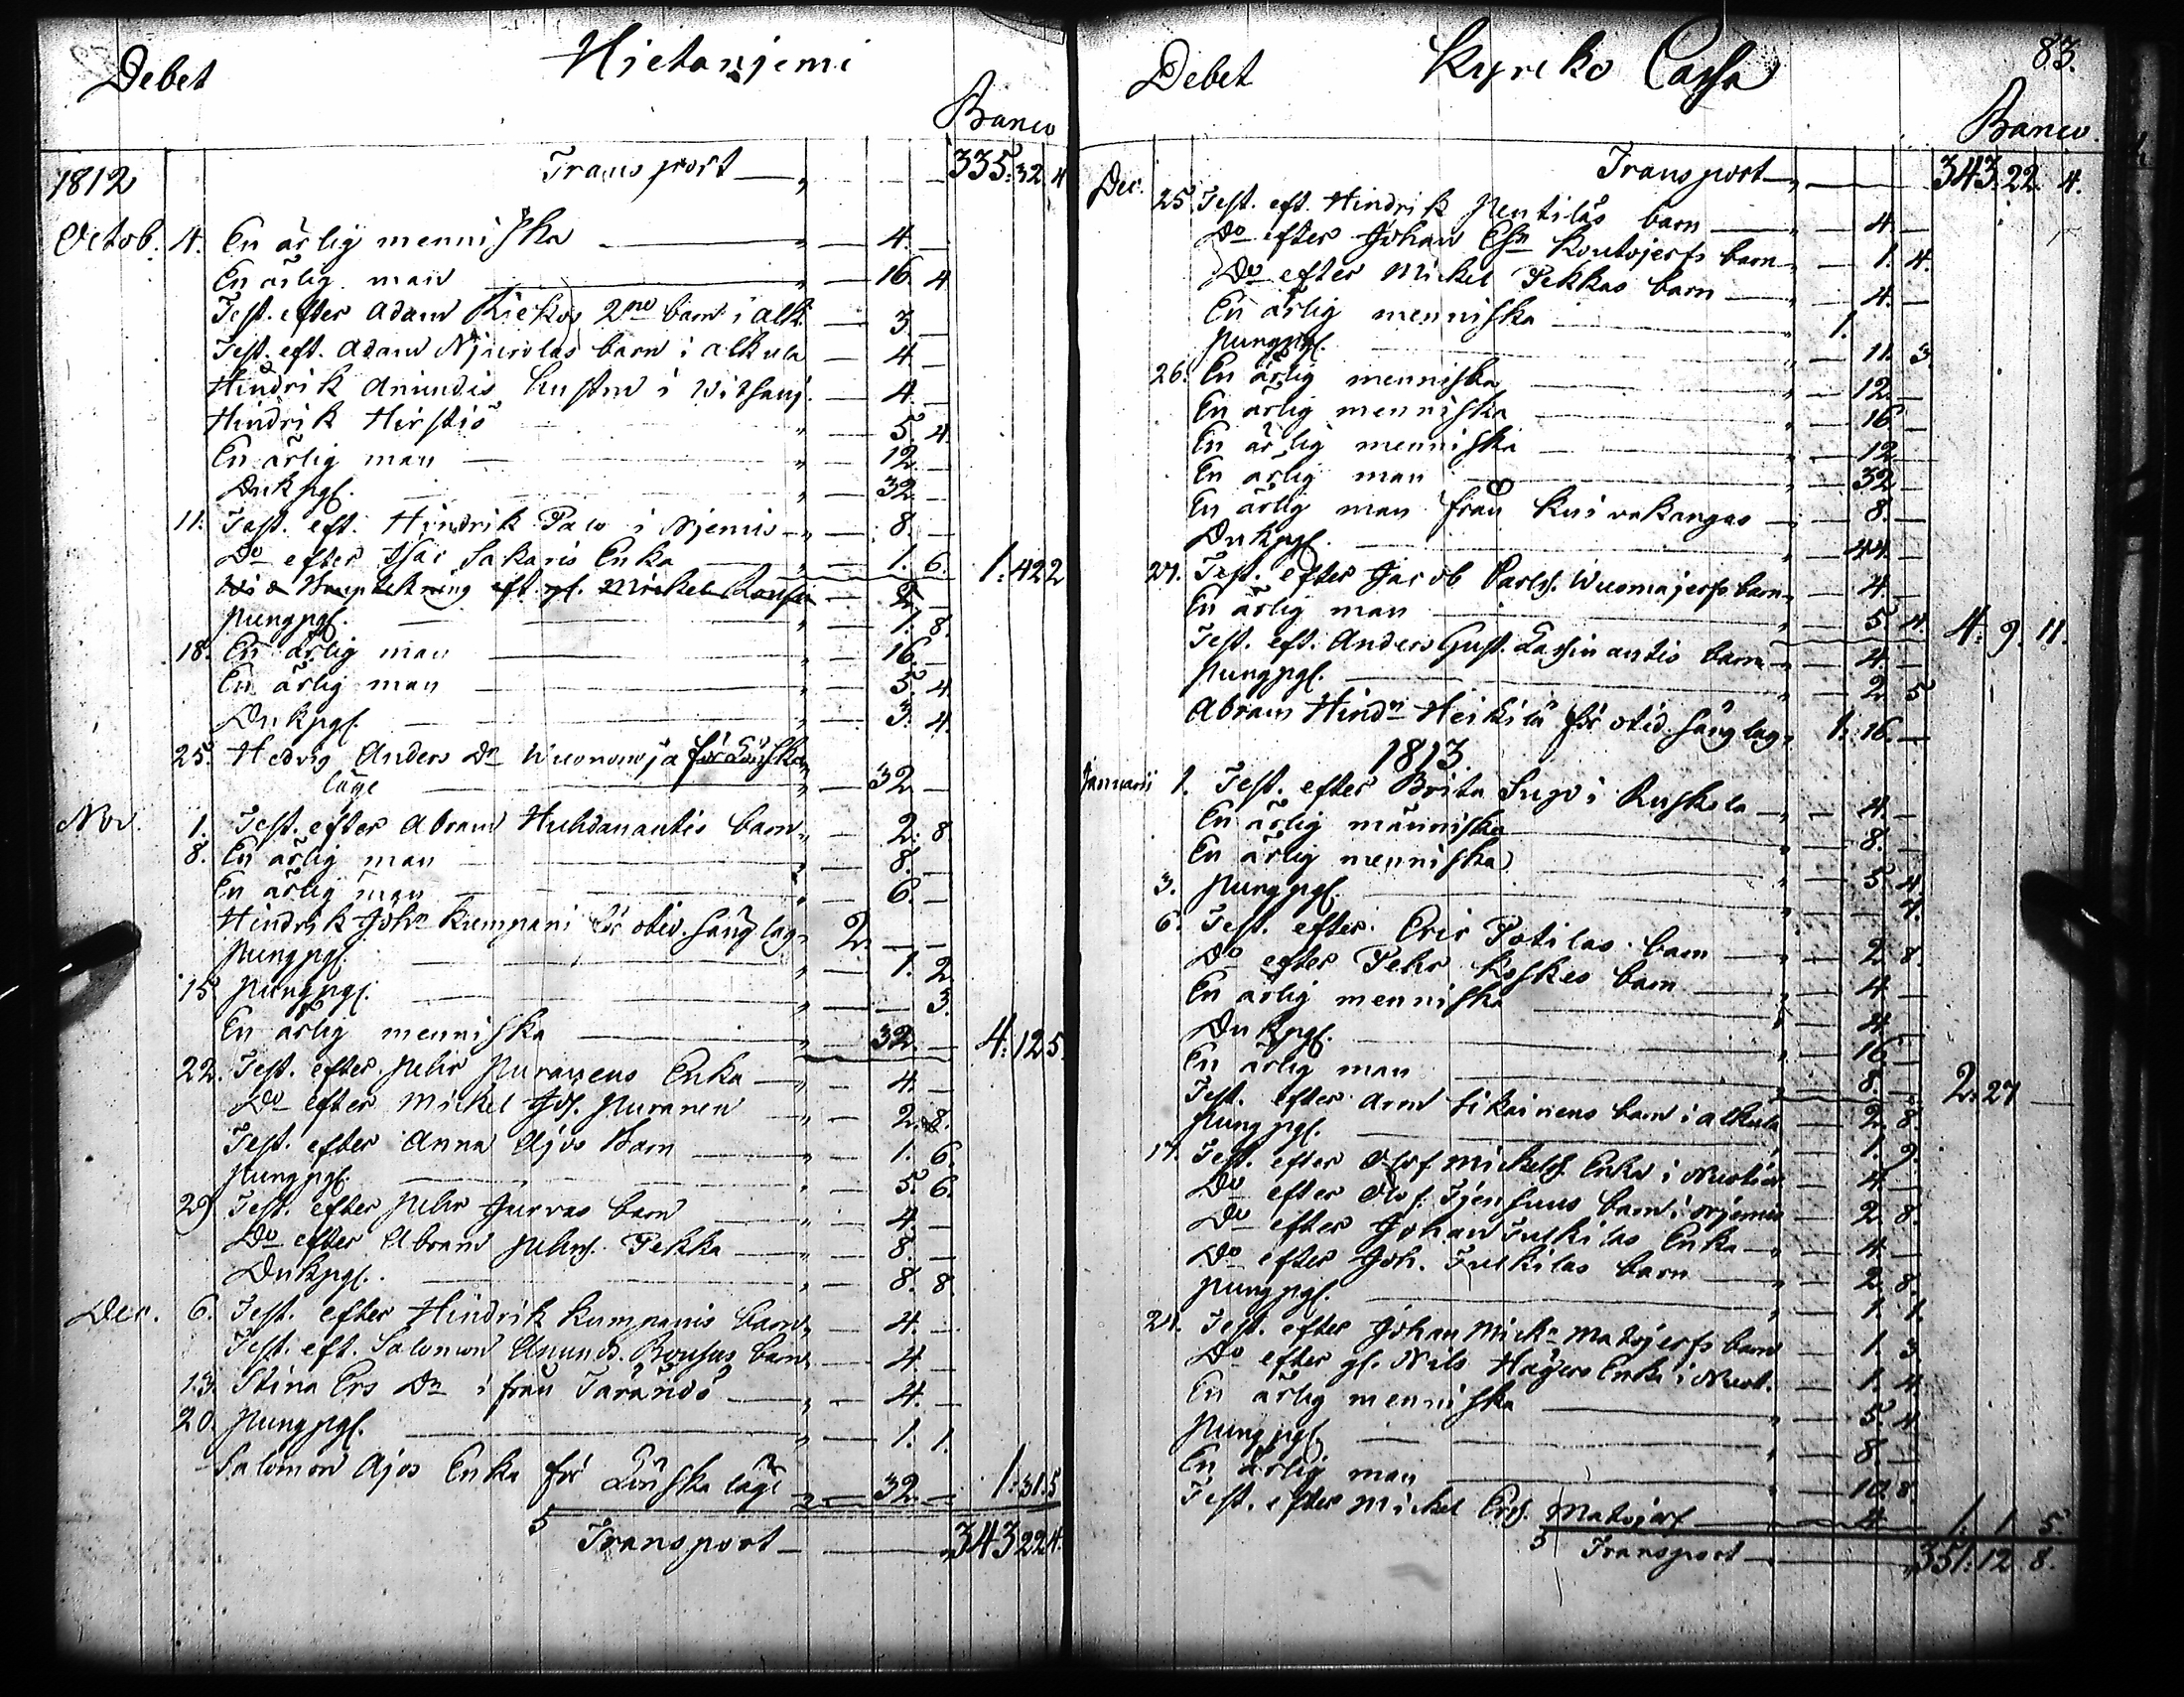 Debet Hietaniemi
Banco
1812 Transport 335: 32 4
Octob. 4. En ärlig menniska 4.
En ärlig man 16. 4
Test. efter Adam Riekos 2ne barn i alk. 3
Test. eft. Adam barn i alkula 4
Hindrik hustru i 4.
Hindrik Hirstiö 5. 4.
En ärlig man 12.
Dukpgr. 32.
11. Test. eft. Hindrik Palo i Njemis 8.
Do efter Isac Sakaris Enka 1. 6. 1: 42 2
eft. Mickel
Pungpgr. 1. 8.
18. En ärlig man 16.
En ärlig man 5. 4
Dukpgr. 3. 4.
25. Hedvig Anders Dr Wuonomoja för
läge 32.
Nov. 1. Test. efter Abram Huhdanantis barn 2. 8.
8. En ärlig man 8.
En ärlig man 6.
Hindrik John Kumpani för otid. sänglag 2.
Pungpgr. 1. 2
15. Pungpgr. 3.
En ärlig menniska 32. 4. 12 5.
22. Test. efter Pehr Puranens Enka 4.
Do efter Mickel Joh. Puranen 2. 8.
Test. efter Anna Ajos Barn 1. 6.
Pungpgr. 5. 6.
29 Test. efter Pehr Jurvas barn 4.
Do efter Abram Pehrs. Pekka 8.
Dukpgr. 8. 8.
Dec. 6. Test. efter Hindrik Kumpanis barn 4.
Test. eft. Salomon Anunds. barn 4
13. Stina Ers Dr ifrån Tärändö 4.
20. Pungpgr. 1. 1.
Salomon Ajos Enka för Lönska läge 32. 1: 31. 5
5 Transport 343 22 4.
Debet Kyrko Cassa 83.
Banco.
Dec. Transport 343. 22. 4.
25 Test. eft. Hindrik Pentiläs barn 4.
Do efter Johan Koutojerfs barn 1. 4.
Do efter Mickel Pekkas barn 4.
En ärlig menniska 1.
Pungpgr. 11. 3.
26. En ärlig menniska 12.
En ärlig menniska 16
En ärlig menniska 12
En ärlig man 32
En ärlig man från Kuivakangas 8.
Dukpgr. 44.
27. Test. efter Jacob Carls. Wuomajerfs barn 4.
En ärlig man 5. 4. 4. 9. 11.
Test. eft. Anders Gust. Lassinantis barn 4.
Pungpgr. 2. 5
Abram Hindn Heikilä för otid. sänglag 1. 16.
1813.
Januarii 1. Test. efter Brita i Ruskola 4.
En ärlig människa 8.
En ärlig menniska 5. 4.
3. Pungpgr. 4.
6. Test. efter Eric Potilas barn 2. 8.
Do efter Pehr Koskes barn 4
En ärlig menniska 4.
Dukpgr. 16
En ärlig man 8. 2. 27
Test. efter barn i alkula 2. 8.
Pungpgr. 1. 9.
17. Test. efter Olof Mickels. Enka i 4.
Do efter Olof barn i Njemis 2. 8.
Do efter Johan Tulkilas Enka 4.
Do efter Joh. Tulkilas barn 2. 8.
Pungpgr. 1. 1.
24. Test. efter Johan Mickn Matojerfs barn 1. 3.
Do efter gl. Nils Enka i 1. 4
En ärlig menniska 5. 4
Pungpgr. 8.
En ärlig man 10. 8.
Test. efter Mickel Ers. Matojärf 4. 1. 1. 5.
5 Transport 351. 12 8.